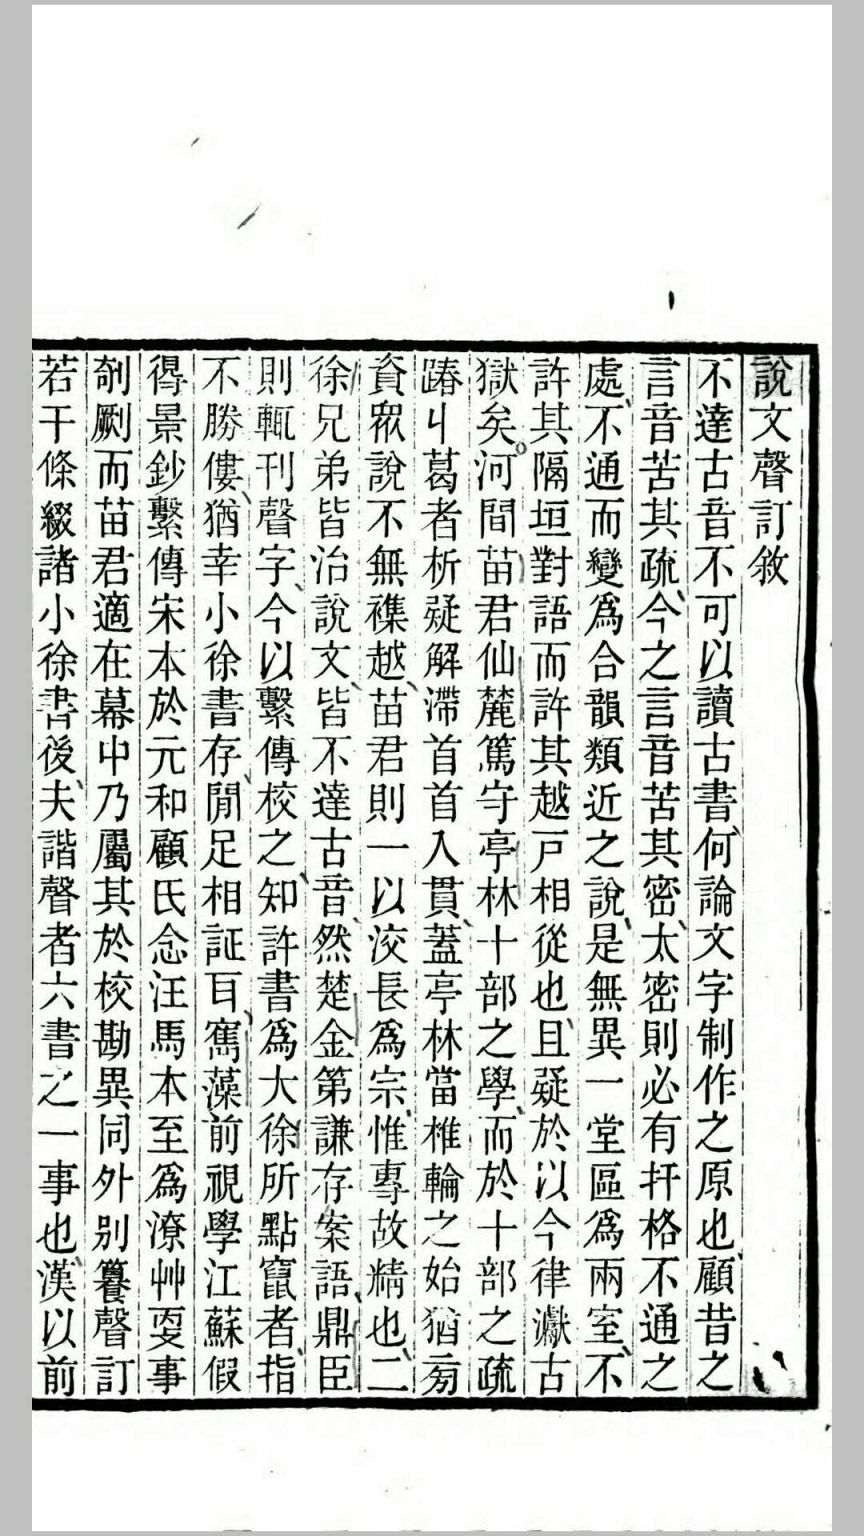 說文聲訂敘
不達古音不可以讀古書何論文字制作之原也顧昔之
言音苦其疏今之言音苦其密太密則必有扞格不通之
處不通而變爲合韻類近之說是無異一堂區爲兩室不
許其隔垣對語而許其越戸相從也且疑於以今律讞古
獄矣河間苗君仙麓篤守亭林十部之學而於十部之疏
踳丩葛者析疑解滯首首入貫蓋亭林當椎輪之始猶㫄
資眾說不無襍越苗君則一以洨長爲宗惟專故精也二
徐兄弟皆治說文皆不達古音然楚金第謙存案語鼎臣
則輒刊聲字今以繫傳校之知許書爲大徐所點竄者指
不勝僂猶幸小徐書存閒足相証耳寯藻前視學江蘇假
得景鈔繫傳宋本於元和顧氏念汪馬本至爲潦艸亟事
剞劂而苗君適在幕中乃屬其於校勘異同外別籑聲訂
若干條綴諸小徐書後夫諧聲者六書之一事也漢以前